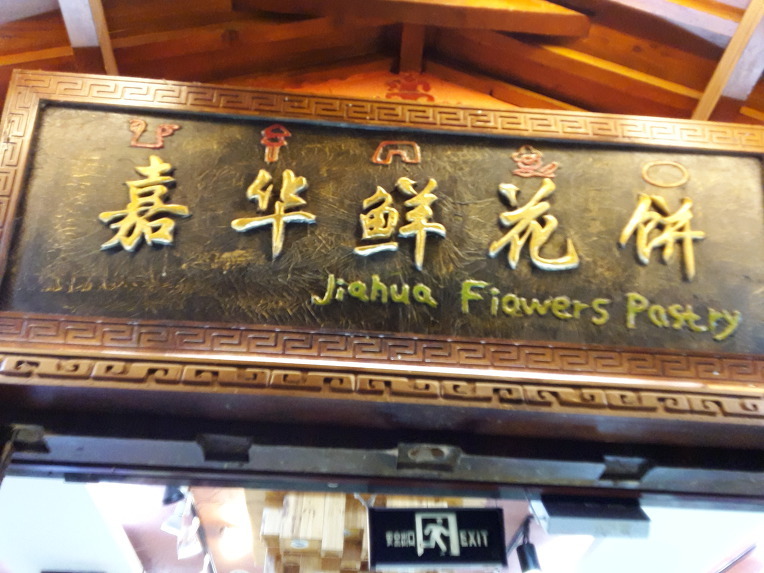 嘉华鲜花饼
Jiahua Fiawers Pastry
EXIT